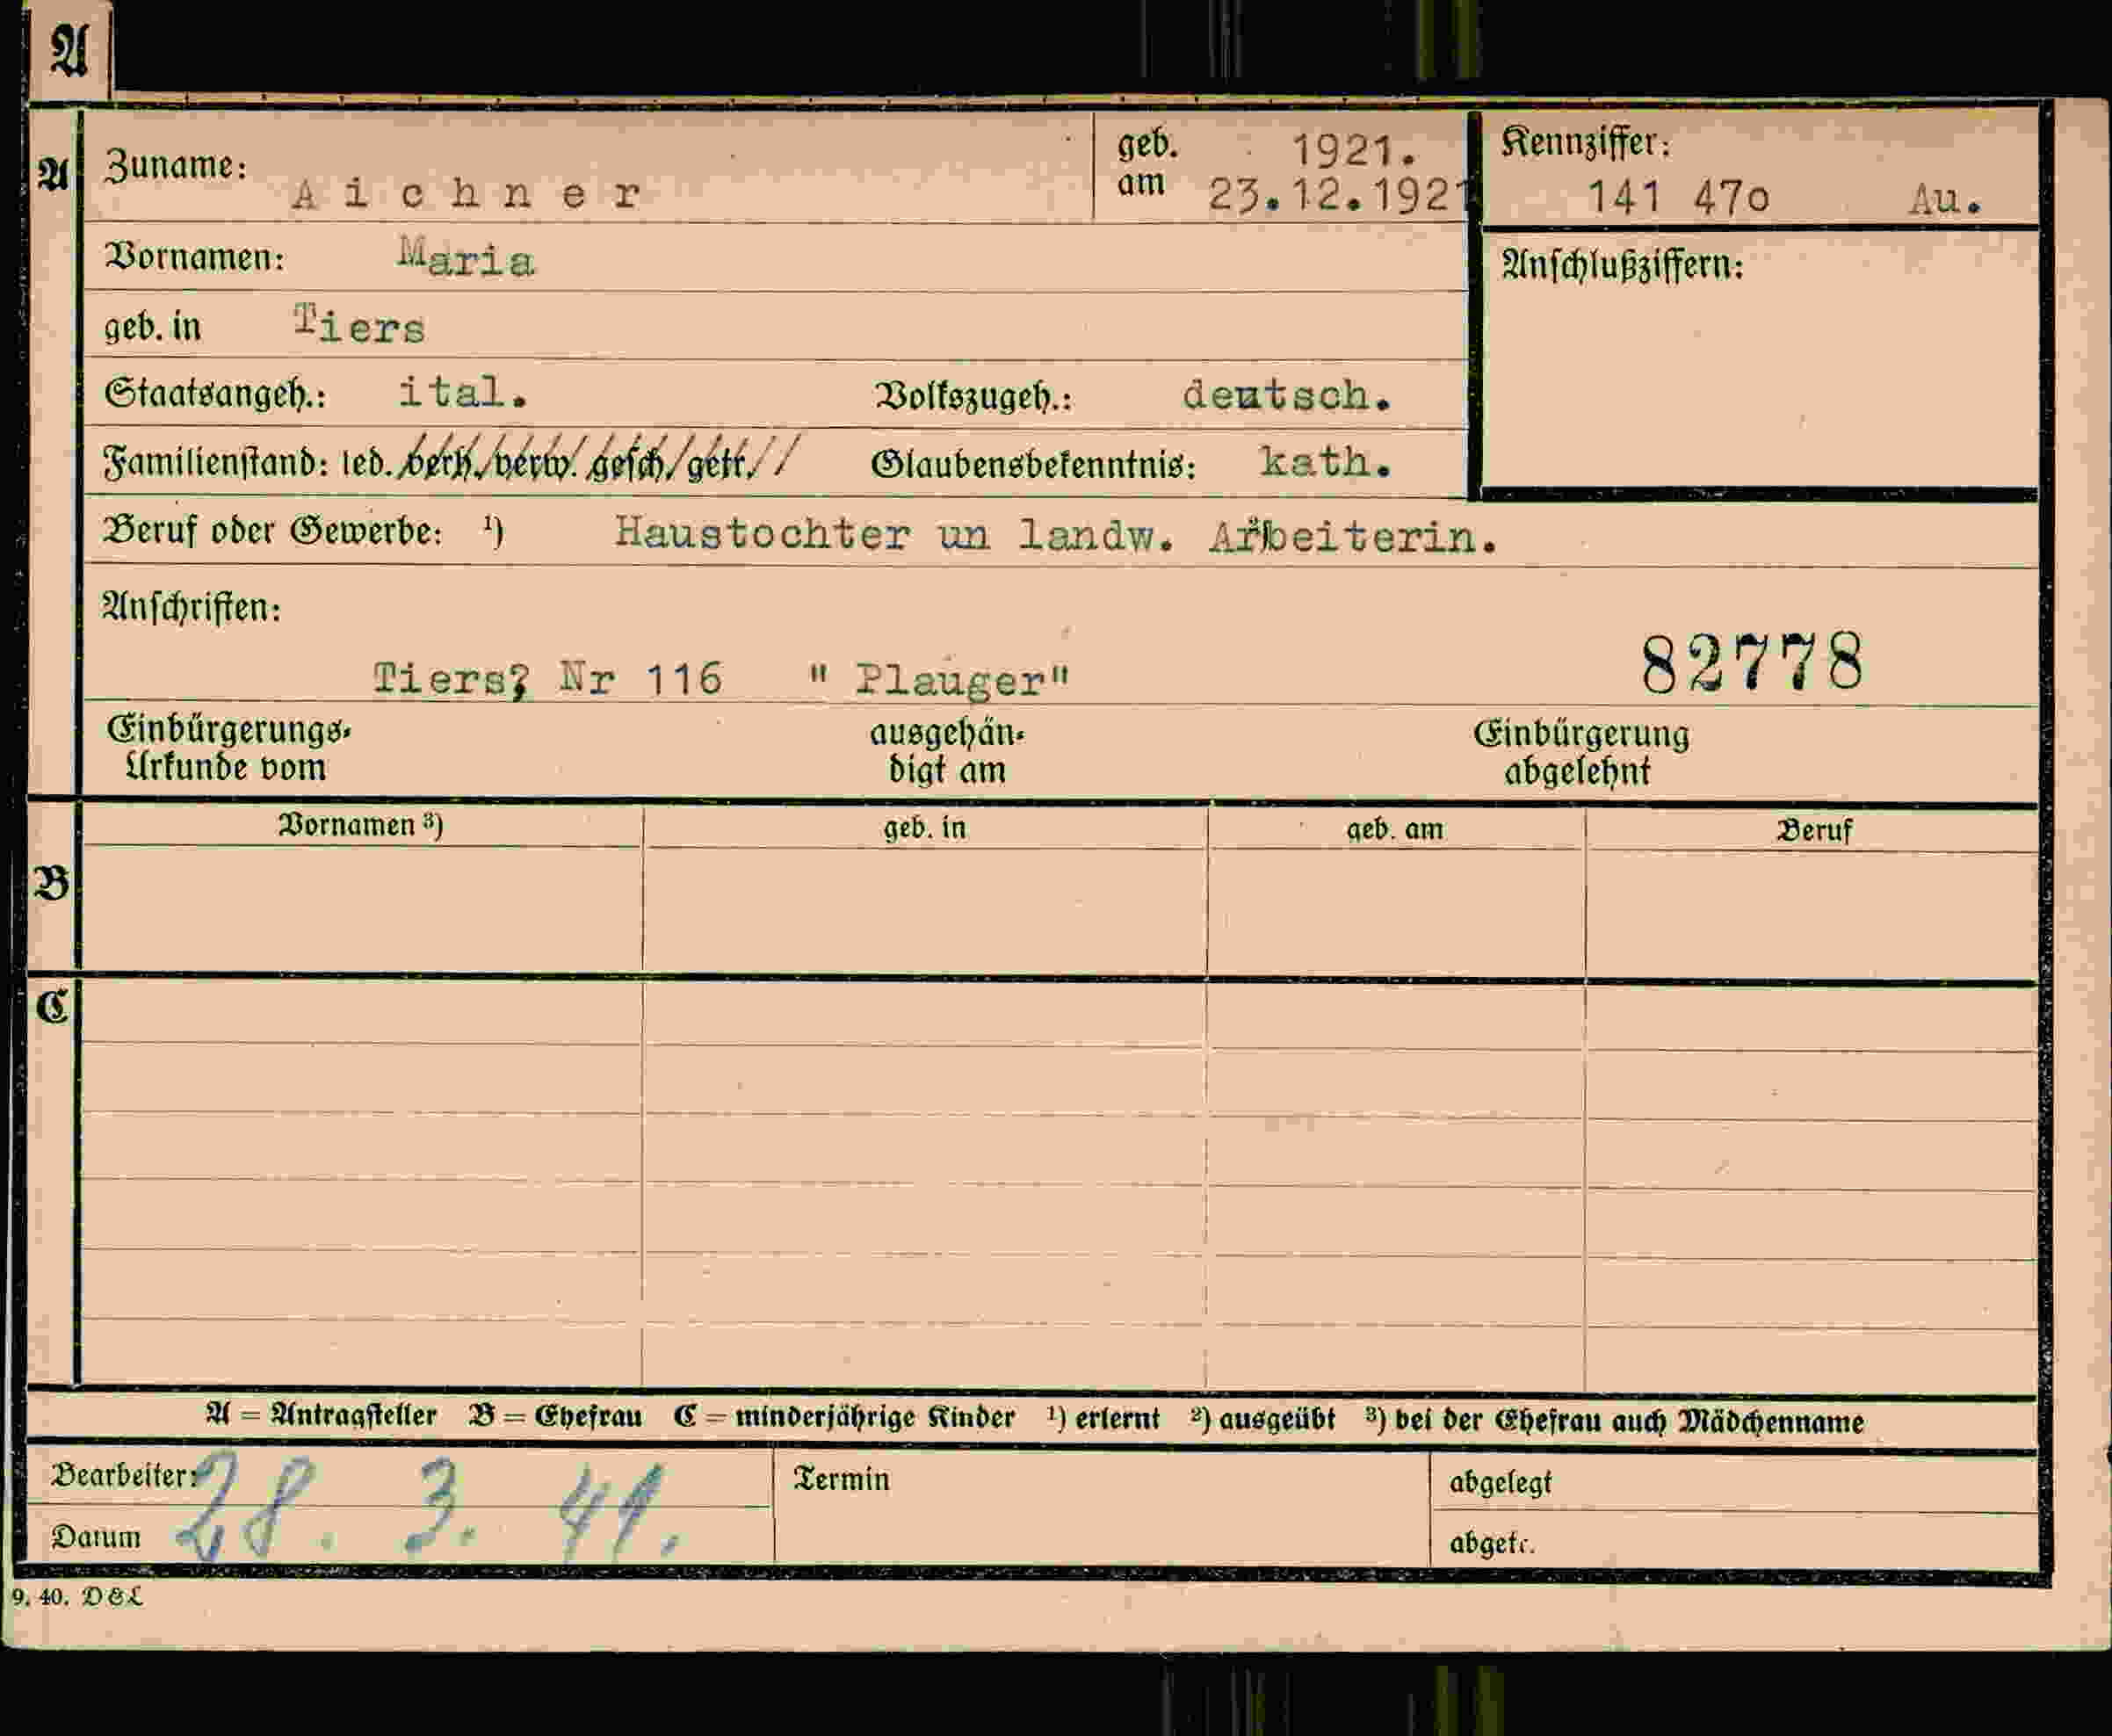 A
A
Zuname: Aichner
geb. am 1921. 23.12.1921
Kennziffer: 141 47o Au.
Vornamen: Maria
Anschlußziffern:
geb. in Tiers
Staatsangeh.: ital. Volkszugeh.: deutsch.
Familienstand: led. verh. verw. gesch. getr. Glaubensbekenntnis: kath.
Beruf oder Gewerbe: ¹) Haustochter un landw. Arbeiterin.
Anschriften:
Tiers? Nr 116 " Plauger"
82778
Einbürgerungs-
Urkunde vom
ausgehän-
digt am
Einbürgerung
abgelehnt
Vornamen ³) geb. in geb. am Beruf
B
C
A = Antragsteller B = Ehefrau C = minderjährige Kinder ¹) erlernt ²) ausgeübt ³) bei der Ehefrau auch Mädchenname
Bearbeiter: Termin abgelegt
Datum 28. 3. 41. abgetr.
9. 40. D & L